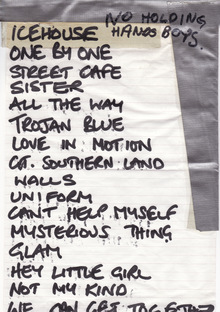 NO HOLDING
HANDS BOYS.
ICEHOUSE
ONE BY ONE
STREET CAFE
SISTER
ALL THE WAY
TROJAN BLUE
LOVE IN MOTION
GT. SOUTHERN LAND
WALLS
UNIFORM
CAN'T HELP MYSELF
MYSTERIOUS THING
GLAM
HEY LITTLE GIRL
NOT MY KIND
WE CAN GET TOGETHER